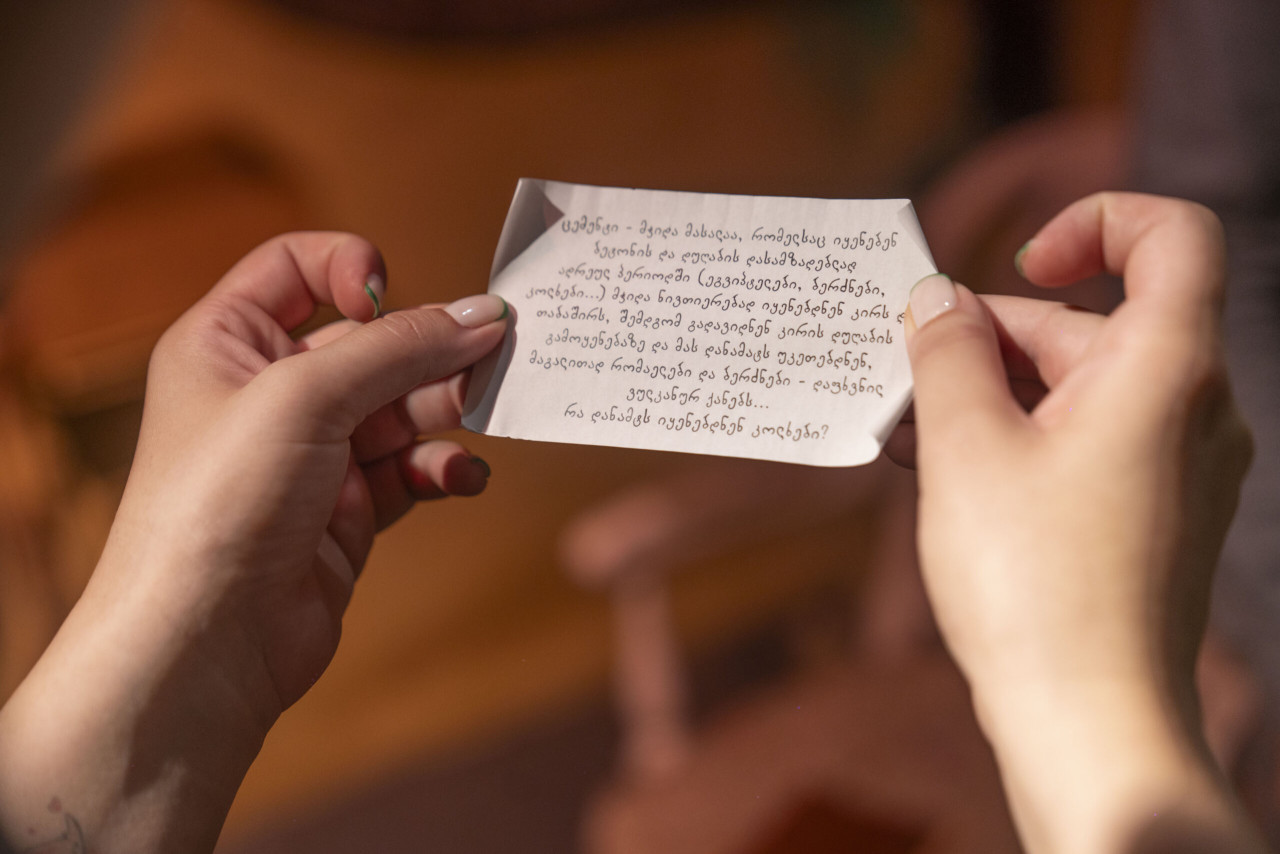 ცემენტი - მჭიდა მასალაა, რომელსაც იყენებენ
ბეტონის და დუღაბის დასამზადებლად
ადრეულ პერიოდში (ეგვიპტელები, ბერძნები,
კოლხები...) მჭიდა ნივთიერებად იყენებდნენ კირს და
თაბაშირს, შემდგომ გადავიდნენ კირის დუღაბის
გამოყენებაზე და მას დანამატს უკეთებდნენ,
მაგალითად რომაელები და ბერძნები - დაფხვნილ
ვულკანურ ქანებს...
რა დანამტს იყენებდნენ კოლხები?